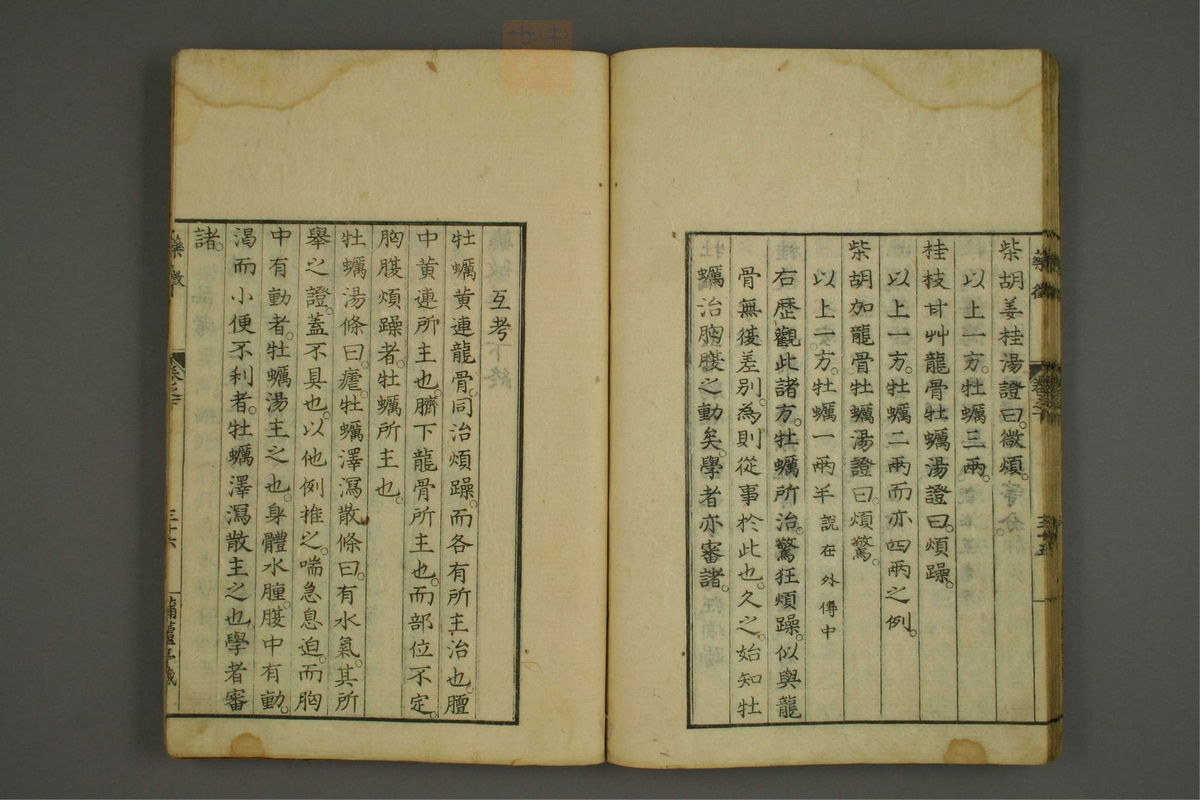 柴胡姜桂湯證曰。微煩。
以上一方。牡蠣三兩。
桂枝甘艸龍骨牡蠣湯證曰。煩躁。
以上一方。牡蠣二兩而亦四兩之例。
柴胡加龍骨牡蠣湯證曰。煩驚。
以上一方。牡蠣一兩半說在外傳中
右歷觀此諸方。牡蠣所治。驚狂煩躁。似與龍
骨無復差別。為則從事於此也。久之。始知牡
蠣治胸腹之動矣。學者亦審諸。
互考
牡蠣黃連龍骨。同治煩躁。而各有所主治也。膻
中黃連所主也。臍下龍骨所主也。而部位不定。
胸腹煩躁者。牡蠣所主也。
牡蠣湯條曰。瘧。牡蠣澤瀉散條曰。有水氣。其所
舉之證。蓋不具也。以他例推之。喘急息迫。而胸
中有動者。牡蠣湯主之也。身體水腫。腹中有動。
渴而小便不利者。牡蠣澤瀉散主之也。學者審
諸。
藥徵
卷之下
三十六